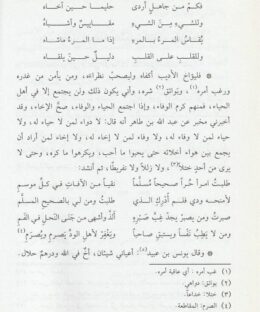 فكم من جاهلٍ أردى حليماً حين آخاه
وللشيء من الشيء مقاييسٌ وأشباه
يُقاس المرءُ بالمرءِ إذا ما المرءُ ماشاه
وللقلب على القلبِ دليلٌ حين يلقاه
* فليؤاخ الأديب أكفاءه وليصحب نظراءه، ومن يأمن من غدره
ورغب أمره(١)، وبوائق(٢) شره، وأنى يكون ذلك ولن يجتمع إلا في أهل
الحياء، فمنهم كرم الوفاء، وإذا اجتمع الحياء والوفاء، صحَّ الإخاء، وقد
أخبرني مخبر عن عبد الله بن طاهر أنه قال: لا دواء لمن لا حياء له، ولا
حياء لمن لا وفاء له، ولا وفاء لمن لا إخاء له، ولا إخاء لمن أراد أن
يجمع بين هواء أخلائه حتى يحبوا ما أحب، ويكرهوا ما كره، وحتى لا
يرى من أحدٍ ختلاً(٣)، ولا زللاً ولا تفريطاً؛ ثم أنشد:
طلبتُ امرأً حُراً صحيحاً مُسلَّماً نقياً من الآفاتِ في كلِّ موسمِ
لأمنحه ودي فلم أُدرك الذي طلبتُ ومن لي بالصحيح المسلَّمِ
صبرتُ ومن يصبر يجدْ غِبَّ صَبرِهِ ألذَّ وأشهى من جَنَى النَّحلِ في الفَمِ
ومن لا يَطِبْ نَفْساً ويستبقِ صاحباً ويَغفِرْ لأهلِ الودِّ يَصرِمْ ويُصرَمِ(٤)
* وقال يونس بن عبيد(٥): أعياني شيئان، أخٌ في الله ودرهمٌ حلال.
(١) غب أمره: أي عاقبة أمره.
(٢) بوائق: دواهي.
(٣) ختلاً: خداعاً.
(٤) الصرم: المقاطعة.